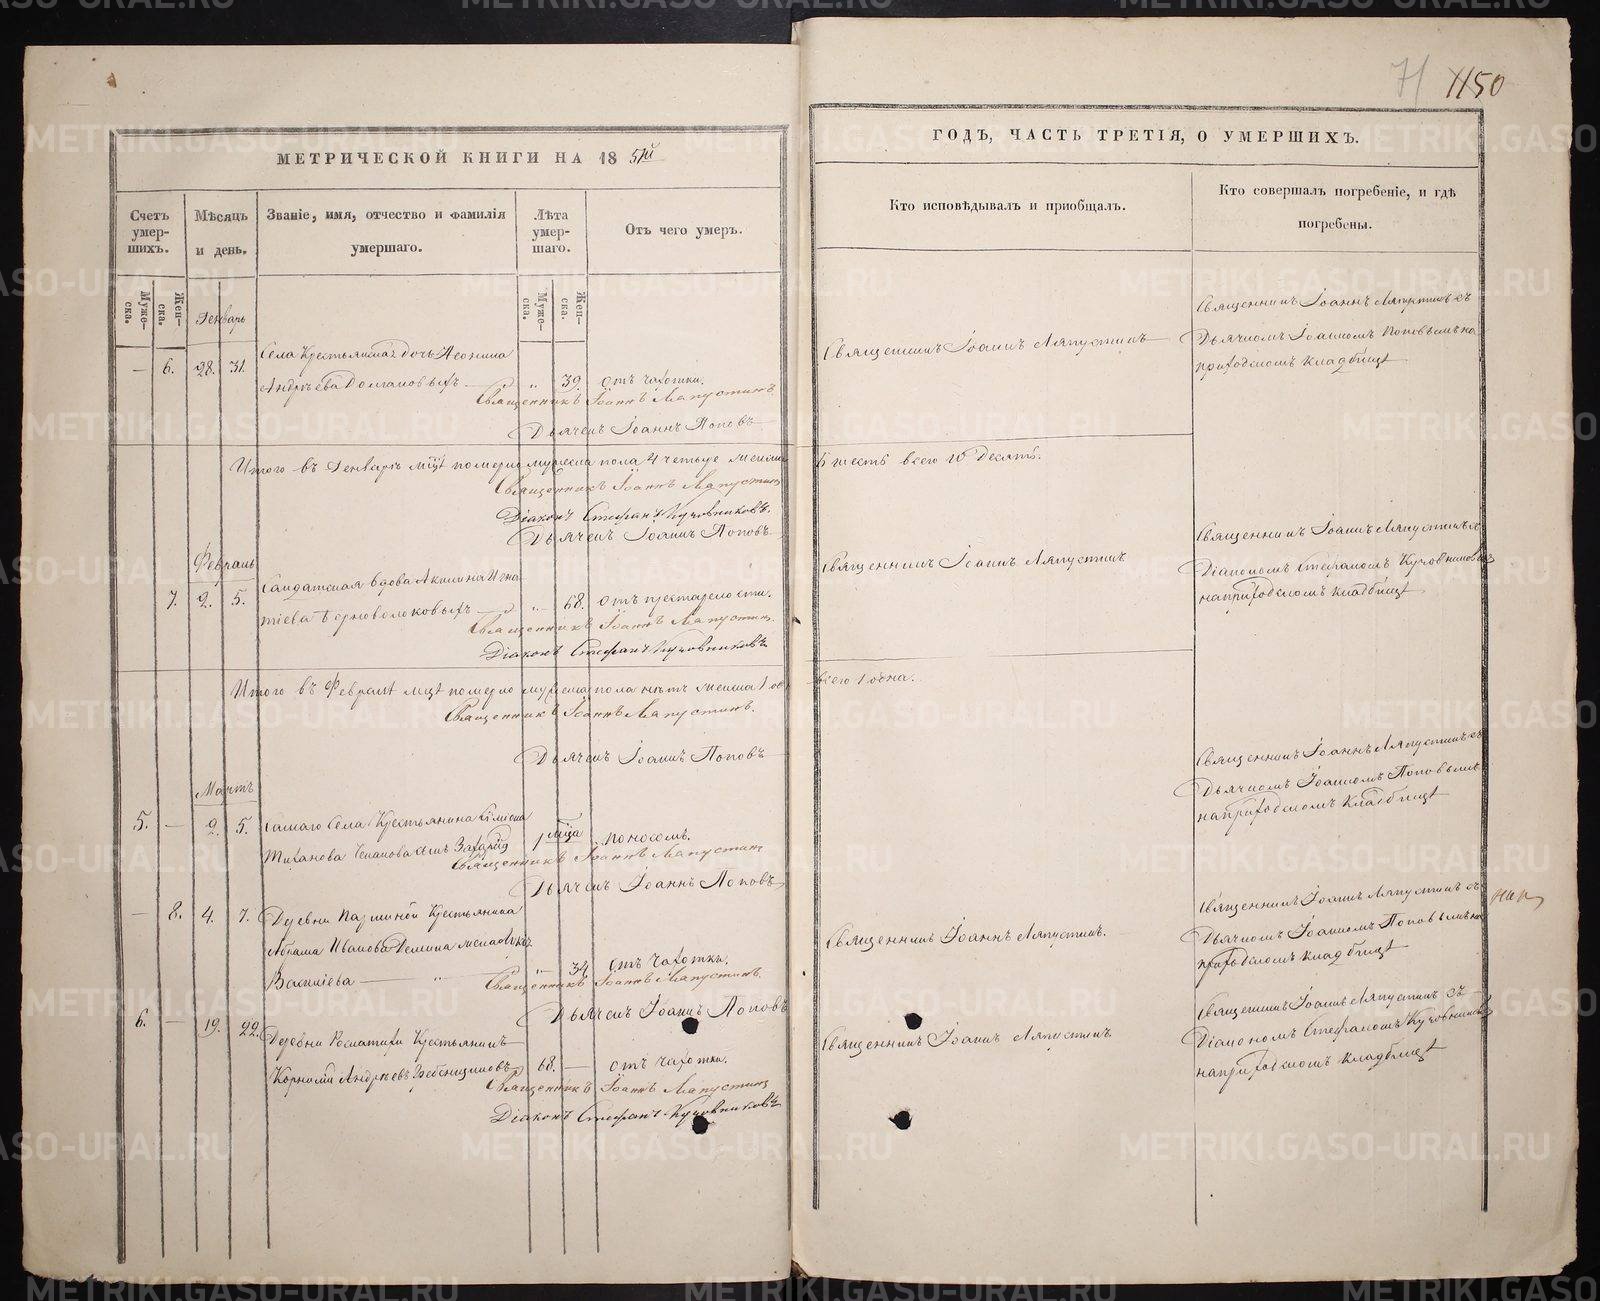 71 1150
МЕТРИЧЕСКОЙ КНИГИ НА 18 51й
ГОДЪ, ЧАСТЬ ТРЕТІЯ, О УМЕРШИХЪ.
Счетъ умер-шихъ.
Мѣсяцъ и день.
Званіе, имя, отчество и фамилія умершаго.
Лѣта умер-шаго.
Отъ чего умеръ.
Кто исповѣдывалъ и пріобщалъ.
Кто совершалъ погребеніе, и гдѣ погребены.
Муже-ска.
Жен-ска.
Муже-ска.
Жен-ска.
Генварь
— 6. 28. 31. Села Крестьянская дочь
Андрѣева — „ 39. отъ чахотки.
Священникъ Іоаннъ Ляпустинъ
Дьячекъ Іоаннъ Поповъ
Священникъ Іоаннъ Ляпустинъ
Священникъ Іоаннъ Ляпустинъ съ
Дьячкомъ Іоанномъ Поповымъ на
приходскомъ кладбищѣ
Итого въ Генварѣ мцѣ померло мужеска пола 4 четыре женска 6 шесть всего 10 десять.
Священникъ Іоаннъ Ляпустинъ
Діаконъ Стефанъ Кучовниковъ.
Дьячекъ Іоаннъ Поповъ.
Февраль
7. 2. 5. Солдатская вдова Акилина Игна
тіева — „ 68. отъ престарелости.
Священникъ Іоаннъ Ляпустинъ.
Діаконъ Стефанъ Кучовниковъ
Священникъ Іоаннъ Ляпустинъ
Священникъ Іоаннъ Ляпустинъ съ
Діакономъ Стефаномъ Кучовниковымъ
на приходскомъ кладбищѣ
Итого въ Февралѣ мцѣ померло мужеска пола нѣтъ женска 1 всего 1 одна.
Священникъ Іоаннъ Ляпустинъ.
Дьячекъ Іоаннъ Поповъ
Мартъ
5. — 2. 5. Самаго Села Крестьянина
сынъ Захарій 1 мца поносомъ.
Священникъ Іоаннъ Ляпустинъ
Дьячекъ Іоаннъ Поповъ
Священникъ Іоаннъ Ляпустинъ съ
Дьячкомъ Іоанномъ Поповымъ
на приходскомъ кладбищѣ
— 8. 4. 7. Деревни Паршиной Крестьянина
Абрама Иванова жена
Василіева — „ 34. отъ чахотки.
Священникъ Іоаннъ Ляпустинъ.
Дьячекъ Іоаннъ Поповъ
Священникъ Іоаннъ Ляпустинъ.
Священникъ Іоаннъ Ляпустинъ съ
Дьячкомъ Іоанномъ Поповымъ на
приходскомъ кладбищѣ
6. — 19. 22. Деревни Крестьянинъ
Корнилій Андрѣевъ 68. — отъ чахотки.
Священникъ Іоаннъ Ляпустинъ
Діаконъ Стефанъ Кучовниковъ
Священникъ Іоаннъ Ляпустинъ.
Священникъ Іоаннъ Ляпустинъ съ
Діакономъ Стефаномъ Кучовниковымъ
на приходскомъ кладбищѣ
METRIKI.GASO-URAL.RU